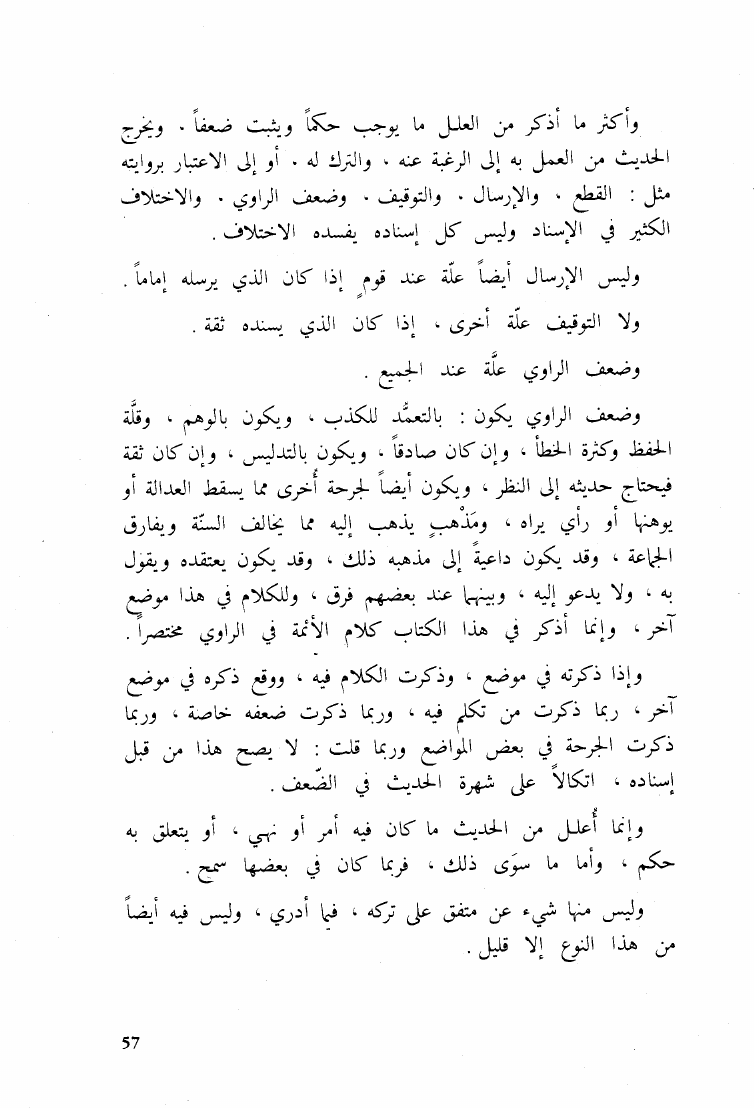 وأكثر ما أذكر من العلل ما يوجب حكماً ويثبت ضعفاً . ويخرج
الحديث من العمل به إلى الرغبة عنه ، والترك له . أو إلى الاعتبار بروايته
مثل : القطع ، والإرسال . والتوقيف . وضعف الراوي . والاختلاف
الكثير في الإسناد وليس كل إسناده يفسده الاختلاف .
وليس الإرسال أيضاً علّة عند قومٍ إذا كان الذي يرسله إماماً .
ولا التوقيف علّة أخرى ، إذا كان الذي يسنده ثقة .
وضعف الراوي علَّة عند الجميع .
وضعف الراوي يكون : بالتعمُّد للكذب ، ويكون بالوهم ، وقلَّة
الحفظ وكثرة الخطأ ، وإن كان صادقاً ، ويكون بالتدليس ، وإن كان ثقة
فيحتاج حديثه إلى النظر ، ويكون أيضاً لجرحة أُخرى مما يسقط العدالة أو
يوهنها أو رأي يراه ، ومَذْهبٍ يذهب إليه مما يخالف السنّة ويفارق
الجماعة ، وقد يكون داعيةً إلى مذهبه ذلك ، وقد يكون يعتقده ويقول
به ، ولا يدعو إليه ، وبينهما عند بعضهم فرق ، وللكلام في هذا موضع
آخر ، وإنما أذكر في هذا الكتاب كلام الأئمة في الراوي مختصراً .
وإذا ذكرته في موضع ، وذكرت الكلام فيه ، ووقع ذكره في موضع
آخر ، ربما ذكرت من تكلم فيه ، وربما ذكرت ضعفه خاصة ، وربما
ذكرت الجرحة في بعض المواضع وربما قلت : لا يصح هذا من قبل
إسناده ، اتكالاً على شهرة الحديث في الضّعف .
وإنما أُعلل من الحديث ما كان فيه أمر أو نهي ، أو يتعلق به
حكم ، وأما ما سوَى ذلك ، فربما كان في بعضها سمح .
وليس منها شيء عن متفق على تركه ، فيما أدري ، وليس فيه أيضاً
من هذا النوع إلا قليل .
57